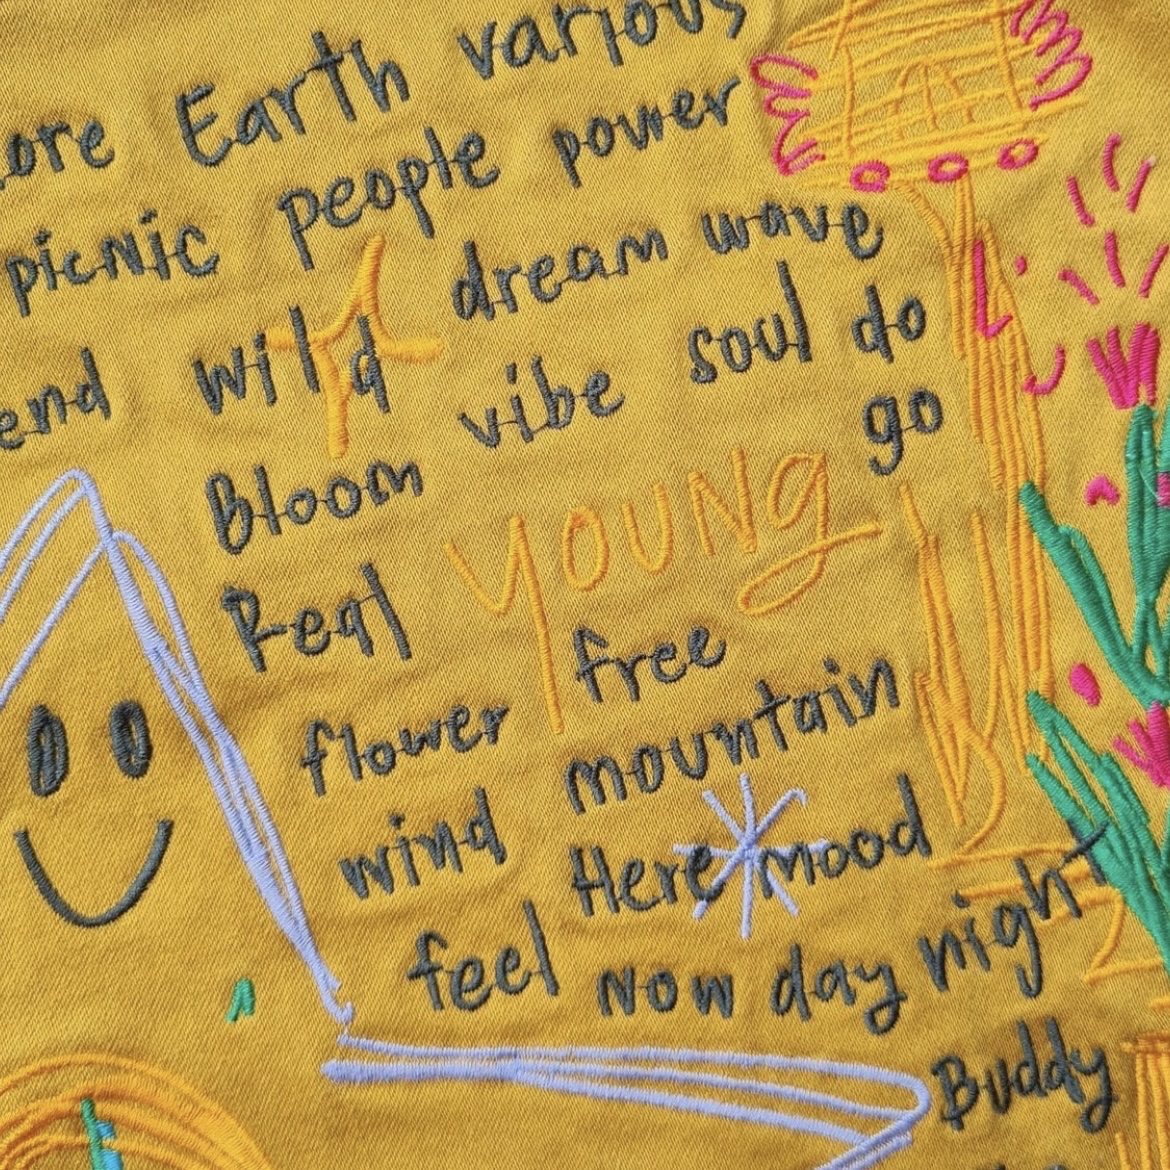 ore Earth various
picnic people power
end wild dream wave
Bloom vibe soul do
go
Real YOUNG
flower free
wind mountain
Here mood
feel NOW day night
Buddy